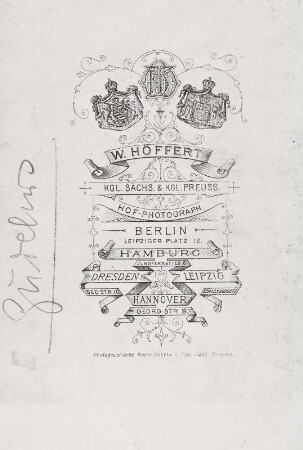 W. HÖFFERT
KGL. SÄCHS. & KGL. PREUSS.
HOF-PHOTOGRAPH
BERLIN
LEIPZIGER PLATZ 12.
HAMBURG
JUNGFERNSTIEG
DRESDEN LEIPZIG
SEE-STR. 10
HANNOVER
GEORG-STR. 9.
Photographische